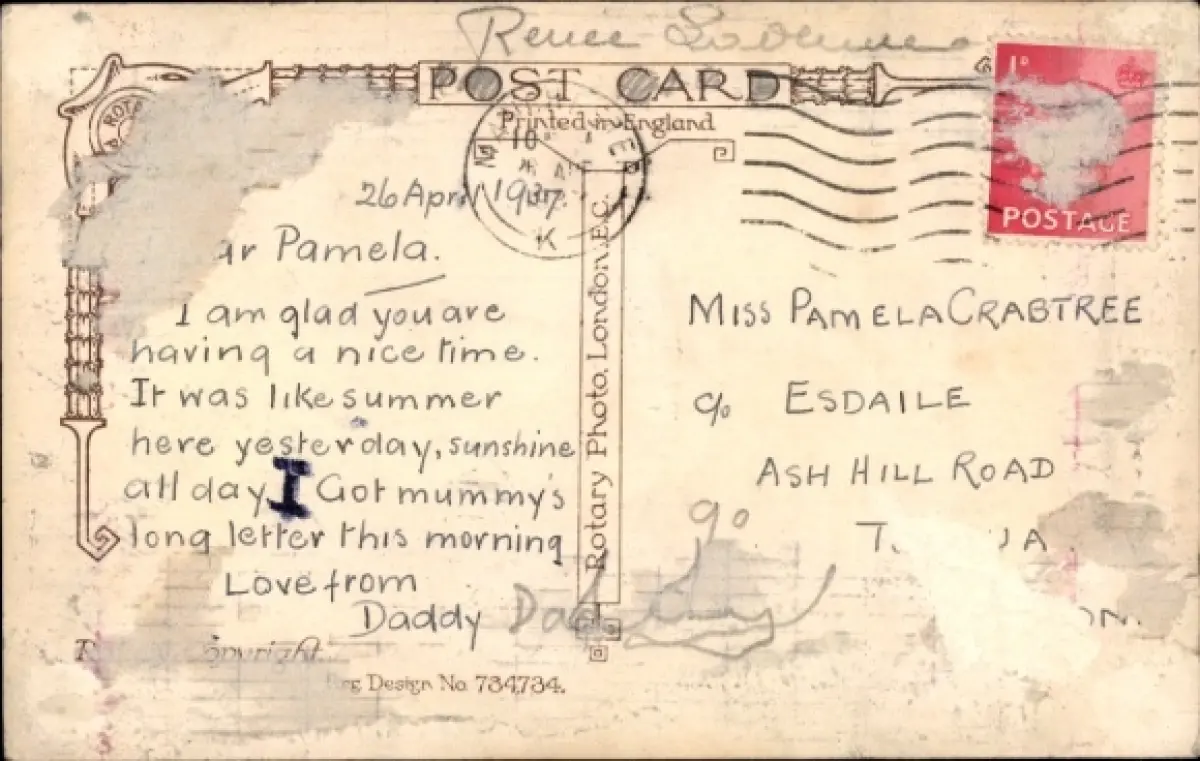 Renee
POST CARD
Printed in England
1D
POSTAGE
26 April 1937.
ar Pamela.
I am glad you are
having a nice time.
It was like summer
here yesterday, sunshine
all day I Got mummy's
long letter this morning
Love from
Daddy
Rotary Photo, London, E.C.
MISS PAMELA CRABTREE
c/o ESDAILE
ASH HILL ROAD
Design No. 734,734.